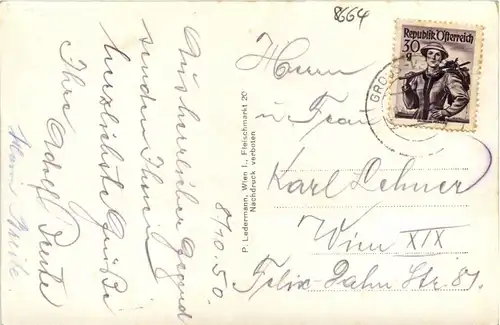 8664
8/10.50.
Aus herrlicher Gegend
senden Ihnen
herzlichste Grüße
Ihre Adolf
P. Ledermann, Wien I., Fleischmarkt 20
Nachdruck verboten
Republik Österreich
30
g
GRO
Herrn
u. Frau
Karl Lehner
Wien XIX
Felix Dahn Str. 81.